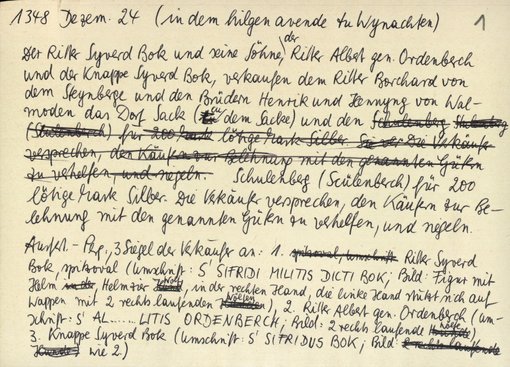 1348 Dezem. 24 (in dem hilgen avende tu Wynachten) 1
Der Ritter Syverd Bok und seine Söhne, der Ritter Albert gen. Ordenberch
und der Knappe Syverd Bok, verkaufen dem Ritter Borchard von
dem Steynberge und den Brüdern Henrik und Hennyng von Wal-
moden das Dorf Sack (tu dem Sacke) und den
(Sculenberch) für 200 Mark lötige Mark Silber. Die Verkäufer
versprechen, den Käufern zur Belehnung mit den genannten Gütern
zu verhelfen, und siegeln. Schulenberg (Sculenberch) für 200
lötige Mark Silber. Die Verkäufer versprechen, den Käufern zur Be-
lehnung mit den genannten Gütern zu verhelfen, und siegeln.
Ausfert.- Perg., 3 Siegel der Verkäufer an: 1. spitzoval, Umschrift Ritter Syverd
Bok, spitzoval (Umschrift: S' SIFRIDI MILITIS DICTI BOK; Bild: Figur mit
Helm Helmzier, in der rechten Hand, die linke Hand stützt sich auf
Wappen mit 2 rechts laufenden Wölfen), 2. Ritter Albert gen. Ordenberch (Um-
schrift: S' AL...... LITIS ORDENBERCH; Bild: 2 rechts laufende Wölfe),
3. Knappe Syverd Bok (Umschrift: S' SIFRIDUS BOK; Bild: 2 rechts laufende
Hunde) wie 2.)